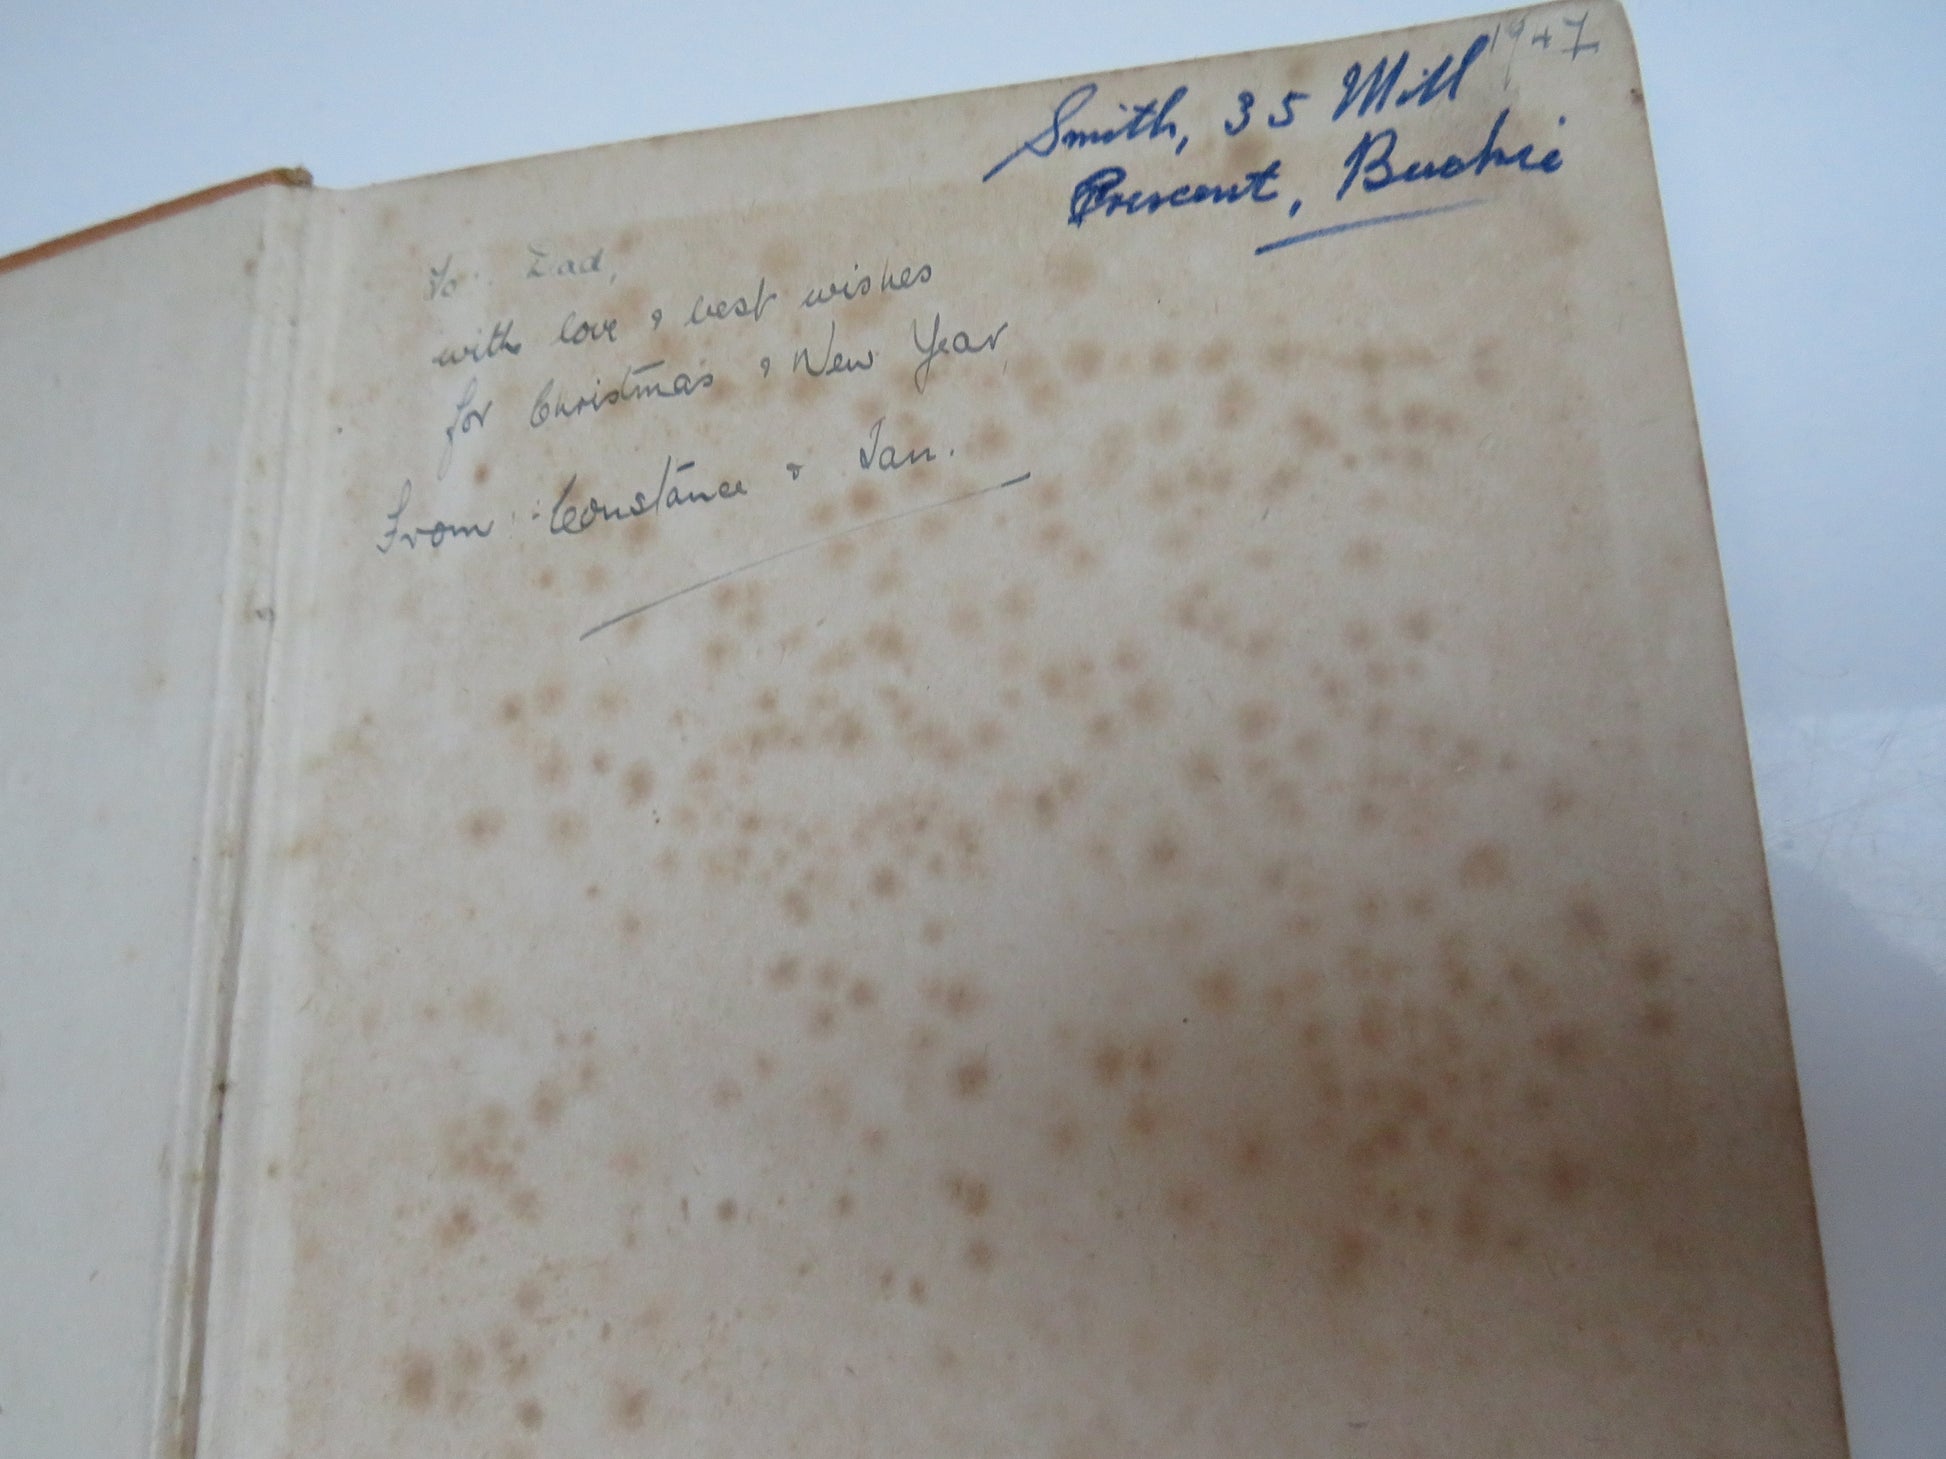 1947
Smith, 35 Mill
Crescent, Buckie
To Dad,
with love & best wishes
for Christmas & New Year
From Constance & Ian.